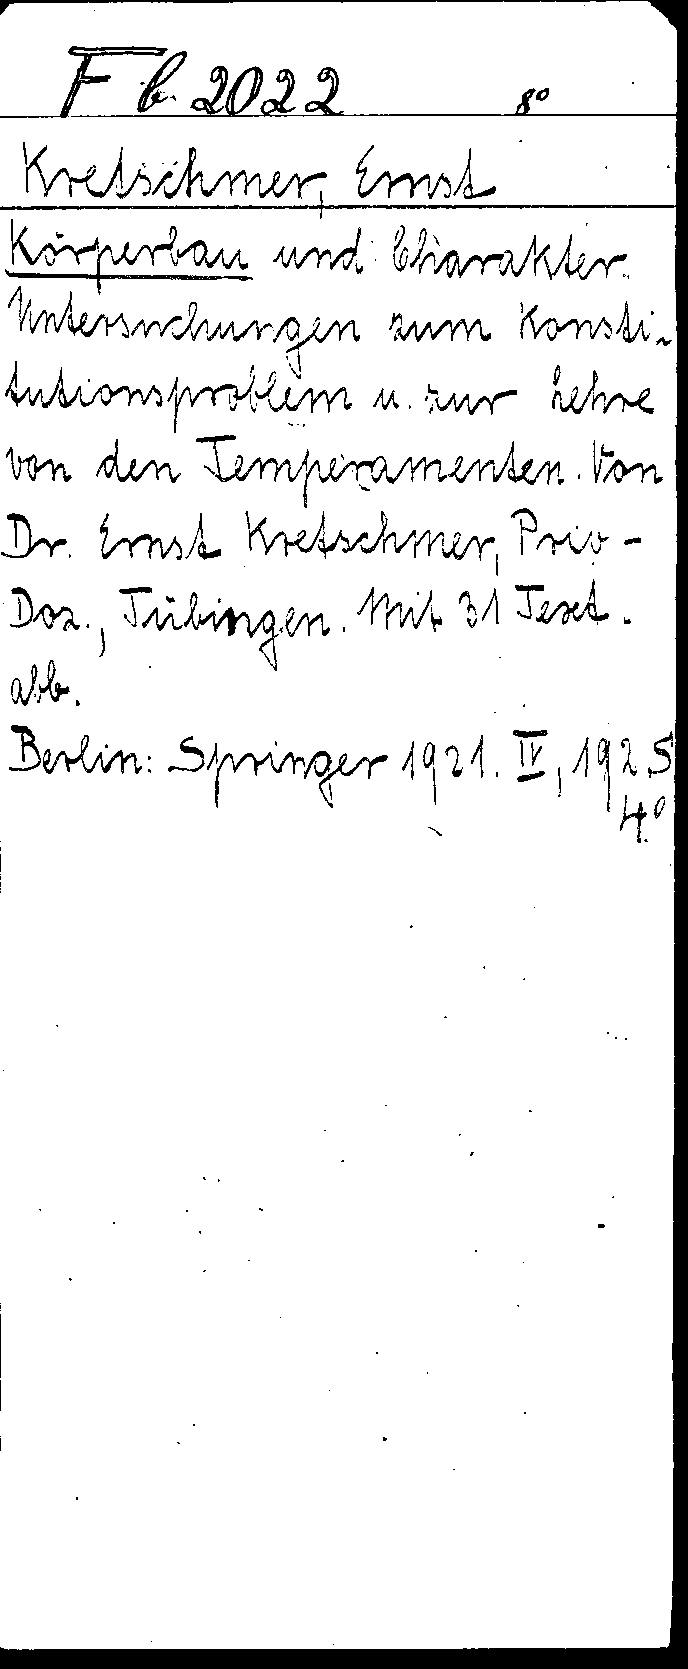 F b. 2022 8°
Kretschmer, Ernst
Körperbau und Charakter.
Untersuchungen zum Konsti-
tutionsproblem u. zur Lehre
von den Temperamenten. Von
Dr. Ernst Kretschmer, Priv-
Doz., Tübingen. Mit 31 Text.
abb.
Berlin: Springer 1921. IV, 192 S
4°